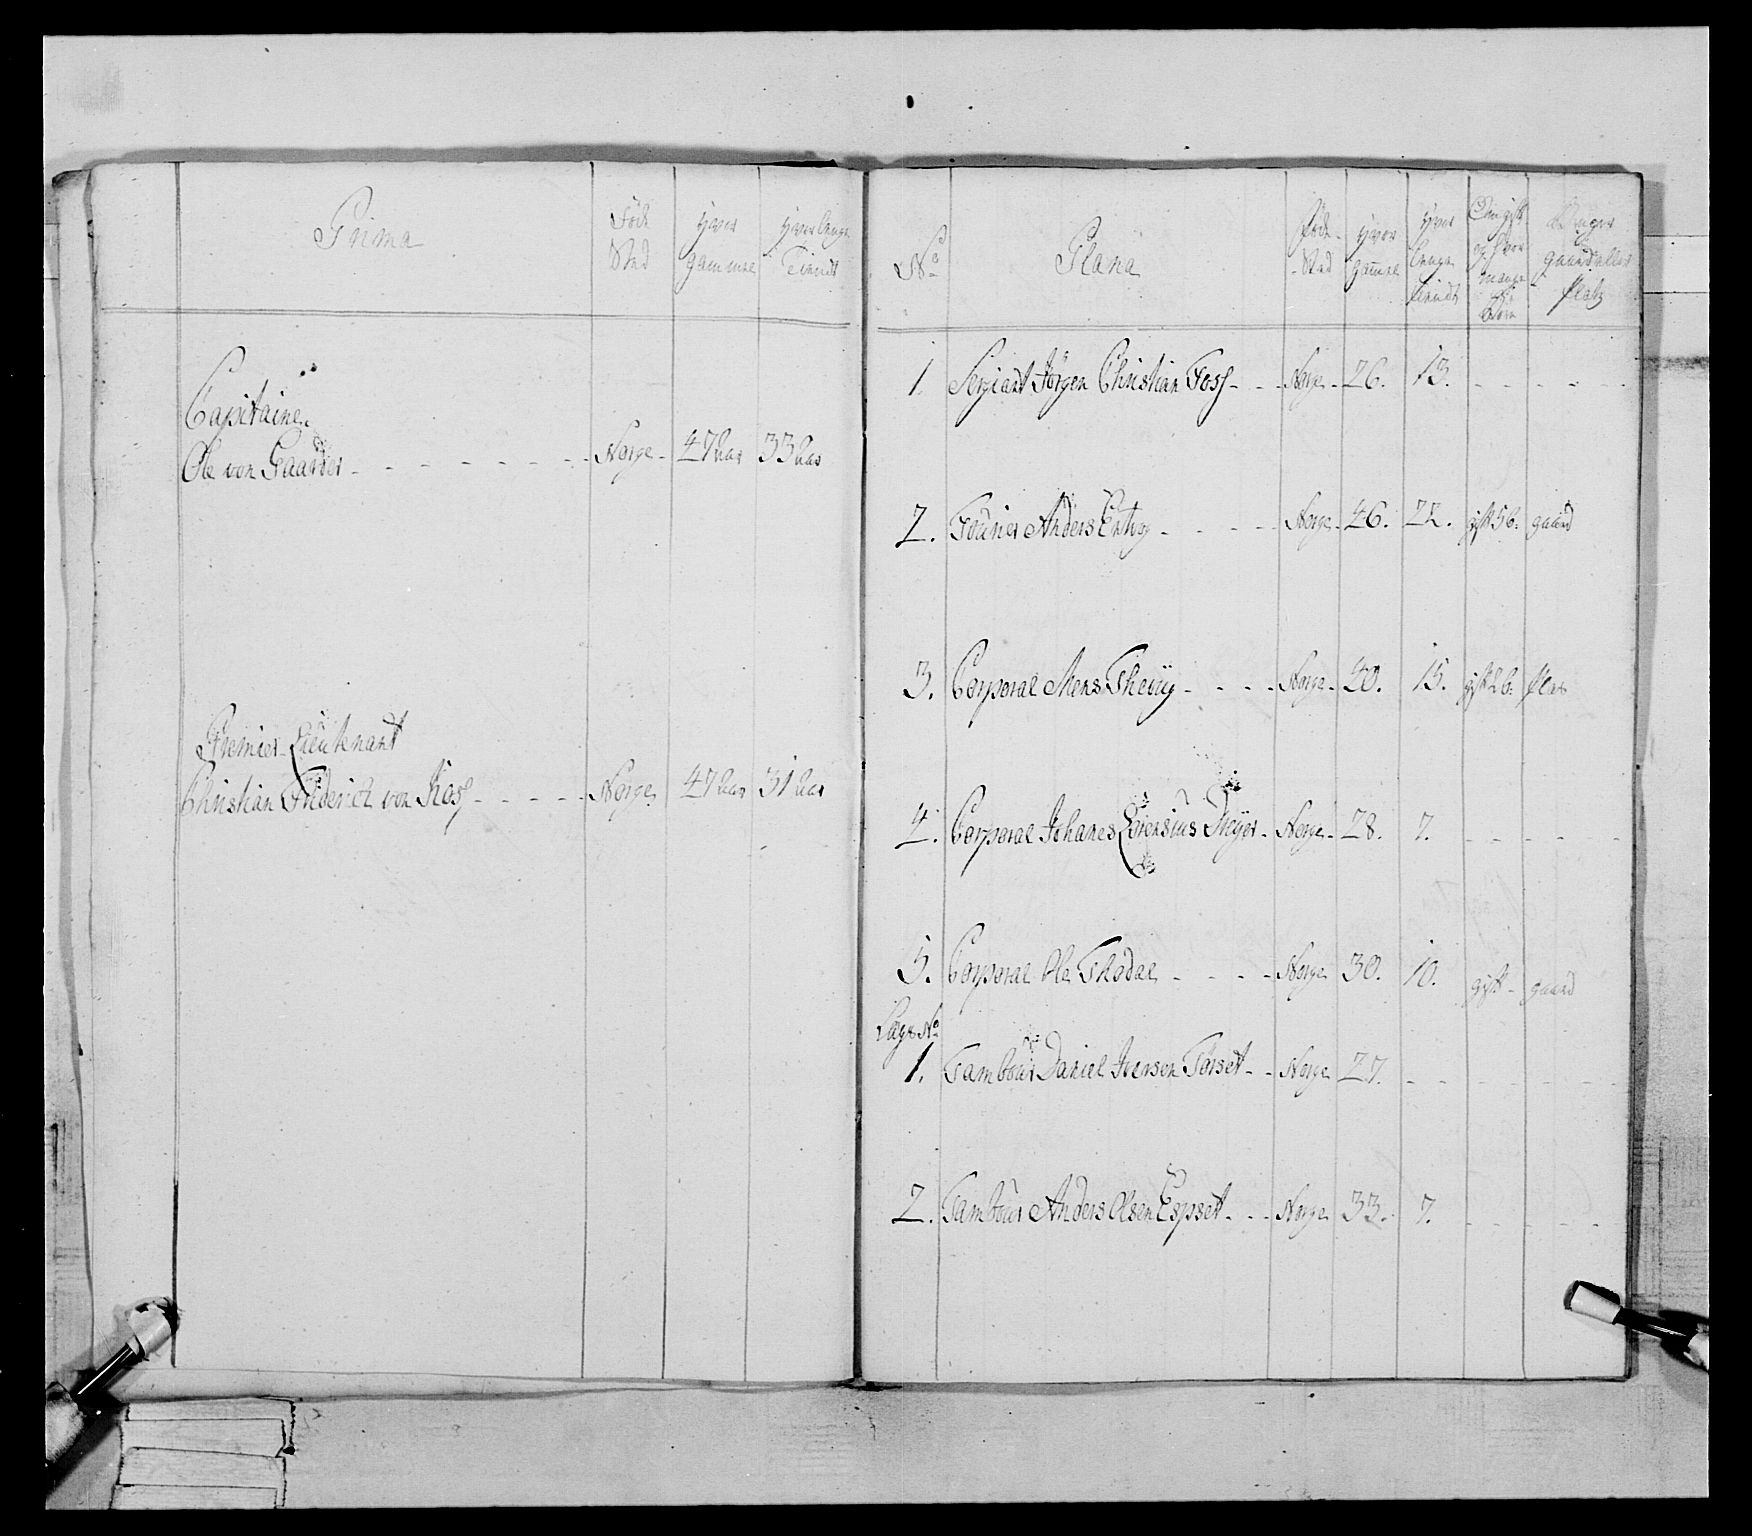 Prima
Föde Sted
Hvor gammel
Hvor lenge Tiendt
Capitaine
Ole von Gaarder - - - - - - - Norge - 47 aar 33 aar
Premier-Lieutenant
Christian Friderich von Koss - - - - - Norge 47 aar 31 aar
No
Plana
Föde-Sted
Hvor gammel
Hvor lenge tiendt
Om gift og hvor mange Börn
gaard eller Platz
1. Sergiant Jörgen Christian Foss - - - Norge - 26. 13. - - - - -
2. Fourier Anders - - - - Norge - 46. 22. gift 5 b. gaard
3. Corporal Mons - - - - Norge - 40. 15. gift 2 b. Plas
4. Corporal Johanes Lorensius Meyer - Norge - 28. 7. - - - - -
5. Corporal Ole - - - - Norge 30. 10. gift - gaard
Lægs No
1. Tambour Daniel Iversen Torset - - Norge 27. - - - - -
2. Tambour Anders Olsen Espset - - - Norge 33. 7. - - - - -